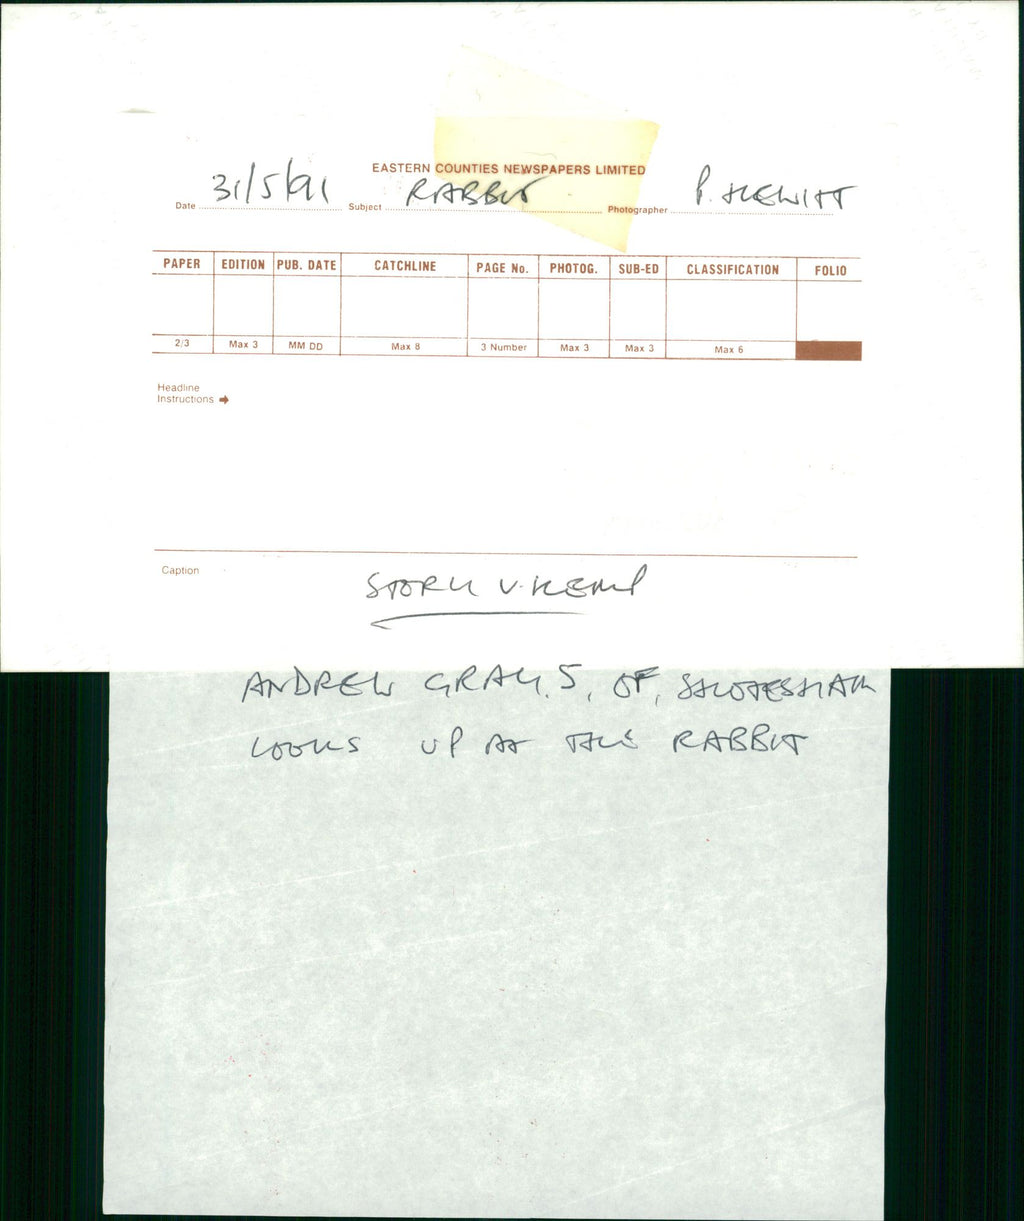 EASTERN COUNTIES NEWSPAPERS LIMITED
Date 31/5/91 Subject RABBIT Photographer P. HEWITT
PAPER EDITION PUB. DATE CATCHLINE PAGE No. PHOTOG. SUB-ED CLASSIFICATION FOLIO
2/3 Max 3 MM DD Max 8 3 Number Max 3 Max 3 Max 6
Headline
Instructions
Caption
STORY V. KEMP
ANDREW GRAY. 5, OF, SHOTESHAM
LOOKS UP AT THE RABBIT